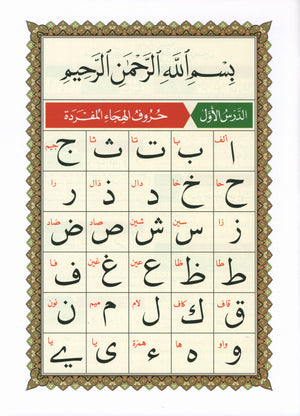 بِسْمِ اللَّهِ الرَّحْمَٰنِ الرَّحِيمِ
الدَّرْسُ الأَوَّل حُرُوفُ الهِجَاءِ المُفْرَدَة
ألف با تا ثا جيم
ا ب ت ث ج
حا خا دال ذال را
ح خ د ذ ر
زا سين شين صاد ضاد
ز س ش ص ض
طا ظا عين غين فا
ط ظ ع غ ف
قاف كاف لام ميم نون
ق ك ل م ن
واو ها همزة يا يا
و ه ء ي ي